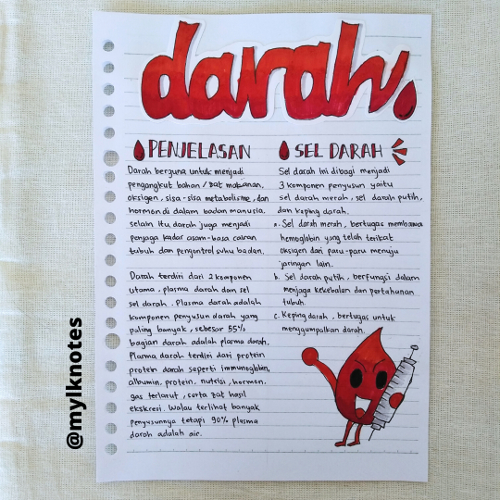 darah
PENJELASAN
Darah berguna untuk menjadi
pengangkut bahan / zat makanan,
oksigen, sisa-sisa metabolisme, dan
hormon di dalam badan manusia.
selain itu darah juga menjadi
penjaga kadar asam-basa cairan
tubuh dan pengontrol suhu badan.
Darah terdiri dari 2 komponen
utama, plasma darah dan sel
sel darah. Plasma darah adalah
komponen penyusun darah yang
paling banyak, sebesar 55%
bagian darah adalah plasma darah.
Plasma darah terdiri dari protein
protein darah seperti immunoglobin,
albumin, protein, nutrisi, hormon,
gas terlarut, serta zat hasil
ekskresi. Walau terlihat banyak
penyusunnya tetapi 90% plasma
darah adalah air.
SEL DARAH
Sel darah ini dibagi menjadi
3 komponen penyusun yaitu
sel darah merah, sel darah putih,
dan keping darah.
a. Sel darah merah, bertugas membawa
hemoglobin yang telah terikat
oksigen dari paru-paru menuju
jaringan lain.
b. Sel darah putih, berfungsi dalam
menjaga kekebalan dan pertahanan
tubuh.
c. Keping darah, bertugas untuk
menggumpalkan darah.
@mylknotes